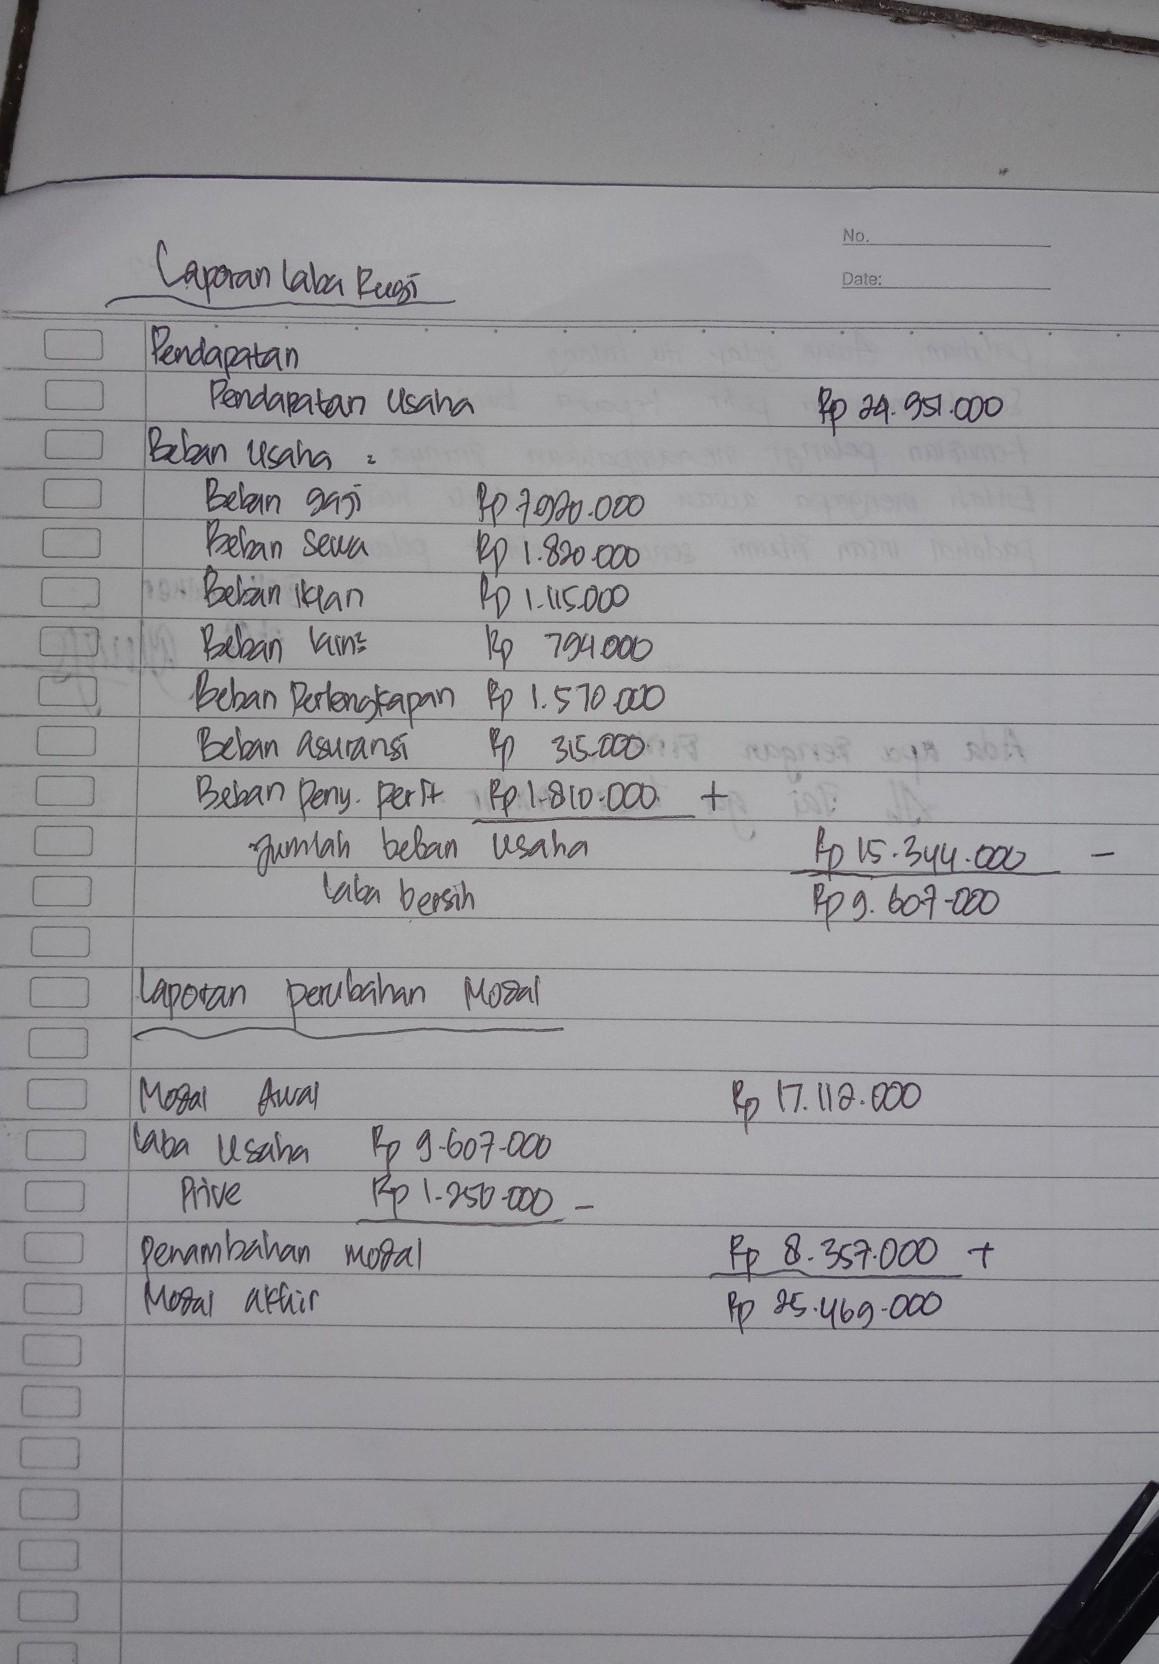 No.
Date:
Laporan Laba Rugi
Pendapatan
Pendapatan Usaha Rp 24.951.000
Beban Usaha :
Beban gaji Rp 7.920.000
Beban Sewa Rp 1.820.000
Beban iklan Rp 1.115.000
Beban lain² Rp 794.000
Beban Perlengkapan Rp 1.570.000
Beban asuransi Rp 315.000
Beban Peny. perlt Rp 1.810.000 +
Jumlah beban Usaha Rp 15.344.000 -
Laba bersih Rp 9.607.000
Laporan perubahan Modal
Modal Awal Rp 17.112.000
Laba Usaha Rp 9.607.000
Prive Rp 1.250.000 -
Penambahan modal Rp 8.357.000 +
Modal akhir Rp 25.469.000